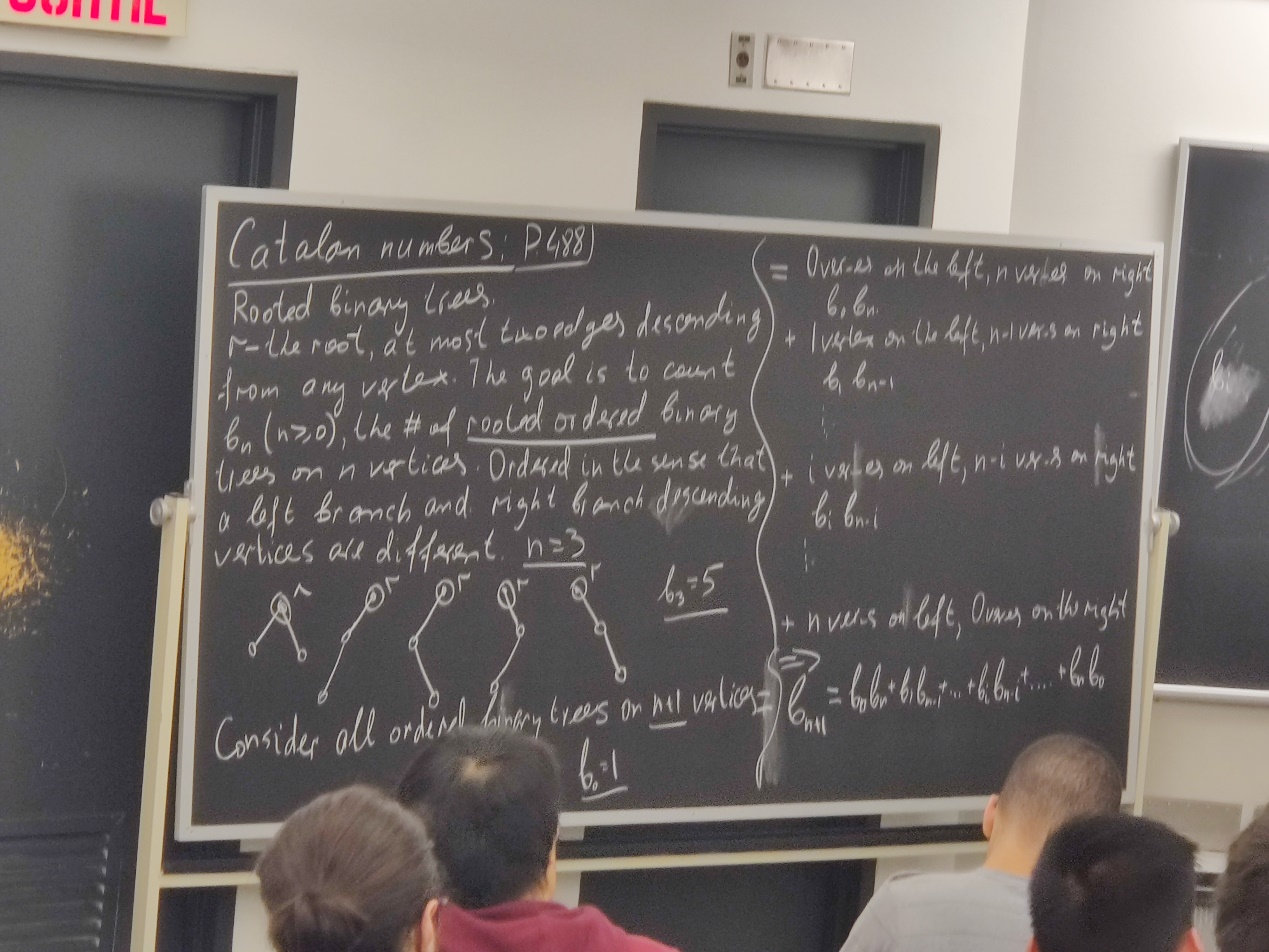 SORTIE
Catalan numbers: P.488)
Rooted binary trees.
r-the root, at most two edges descending
from any vertex. The goal is to count
bn (n≥0), the # of rooted ordered binary
trees on n vertices. Ordered in the sense that
a left branch and right branch descending
vertices are different. n=3
r r r r r
b3=5
Consider all ordered binary trees on n+1 vertices=
b0=1
= 0 ver-es on the left, n vertes on right
b0 bn.
+ 1 vertex on the left, n-1 ver-s on right
b1 bn-1
+ i vertes on left, n-i ver-s on right
bi bn-i
+ n ver-s on left, 0 vers on the right
=> bn+1 = b0bn+b1bn-1+...+bibn-i+....+bnb0